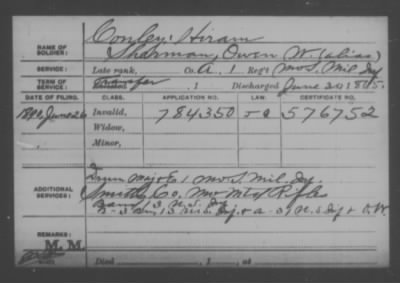 Conley, Hiram
NAME OF SOLDIER: Sharman, Owen W. (alias)
SERVICE: Late rank, Co. A, 1 Reg't Mo S. Mil Inf
TERM OF SERVICE: Transfer, 1 Discharged June 1865.
DATE OF FILING. CLASS. APPLICATION NO. LAW. CERTIFICATE NO.
1890, June 26 Invalid, 784350 576752
Widow,
Minor,
Drum Major E 1 Mo S. Mil. Inf.
ADDITIONAL SERVICES: Co. Mo Mtd Rifles
Band 13 U.S. Inf
13 U.S. Inf. & A - U.S. Inf &
REMARKS:
M. M.
Died , 1 , at